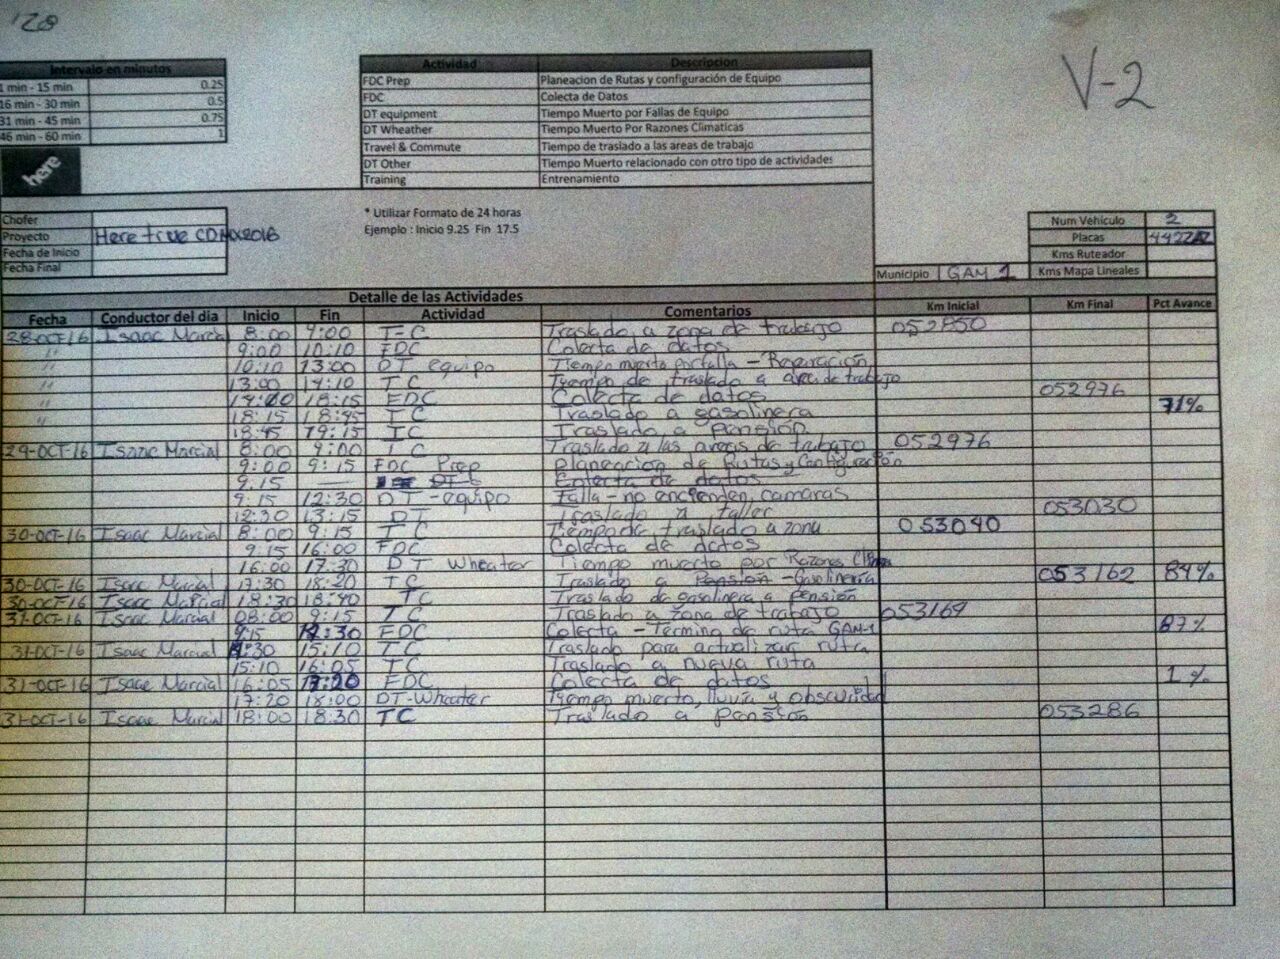 '28
V-2
Intervalo en minutos
1 min - 15 min 0.25
16 min - 30 min 0.5
31 min - 45 min 0.75
46 min - 60 min 1
here
Actividad Descripcion
FDC Prep Planeacion de Rutas y configuración de Equipo
FDC Colecta de Datos
DT equipment Tiempo Muerto por Fallas de Equipo
DT Wheather Tiempo Muerto Por Razones Climaticas
Travel & Commute Tiempo de traslado a las areas de trabajo
DT Other Tiempo Muerto relacionado con otro tipo de actividades
Training Entrenamiento
* Utilizar Formato de 24 horas
Ejemplo : Inicio 9.25 Fin 17.5
Chofer
Proyecto Here true CDMX2016
Fecha de Inicio
Fecha Final
Num Vehículo 2
Placas
Kms Ruteador
Municipio GAM 1 Kms Mapa Lineales
Detalle de las Actividades
Fecha Conductor del dia Inicio Fin Actividad Comentarios Km Inicial Km Final Pct Avance
28-OCT-16 Isaac Marcial 8:00 9:00 T-C Traslado a zona de trabajo 052850
" 9:00 10:10 FDC Colecta de datos
" 10:10 13:00 DT equipo Tiempo muerto por falla - Reparación
" 13:00 14:10 TC Tiempo de traslado a area de trabajo
" 18:15 FDC Colecta de datos 052976
" 18:15 18:45 TC Traslado a gasolinera 71%
18:45 19:15 TC Traslado a Pensión
29-OCT-16 Isaac Marcial 8:00 9:00 TC Traslado a las areas de trabajo 052976
9:00 9:15 FDC Prep planeacion de Rutas y Configuración
9:15 — Colecta de datos
9:15 12:30 DT-equipo Falla - no encienden camaras
12:30 13:15 DT Traslado a taller 053030
30-OCT-16 Isaac Marcial 8:00 9:15 TC Tiempo de traslado a zona 053040
9:15 16:00 FDC Colecta de datos
16:00 17:30 DT Wheater Tiempo muerto por Razones
30-OCT-16 Isaac Marcial 17:30 18:20 TC Traslado a Pensión - Gasolineria 053162 84%
30-OCT-16 Isaac Marcial 18:30 18:40 TC Traslado de gasolinera a pensión
31-OCT-16 Isaac Marcial 08:00 9:15 TC Traslado a zona de trabajo 053169
9:15 FDC Colecta - Termino de ruta GAM-1 87%
31-OCT-16 Isaac Marcial 15:10 TC Traslado para actualizar ruta
15:10 16:05 TC Traslado a nueva ruta
31-OCT-16 Isaac Marcial 16:05 17:20 FDC Colecta de datos 1%
17:20 18:00 DT-Wheater Tiempo muerto, lluvia y obscuridad
31-OCT-16 Isaac Marcial 18:00 18:30 TC Traslado a pensión 053286